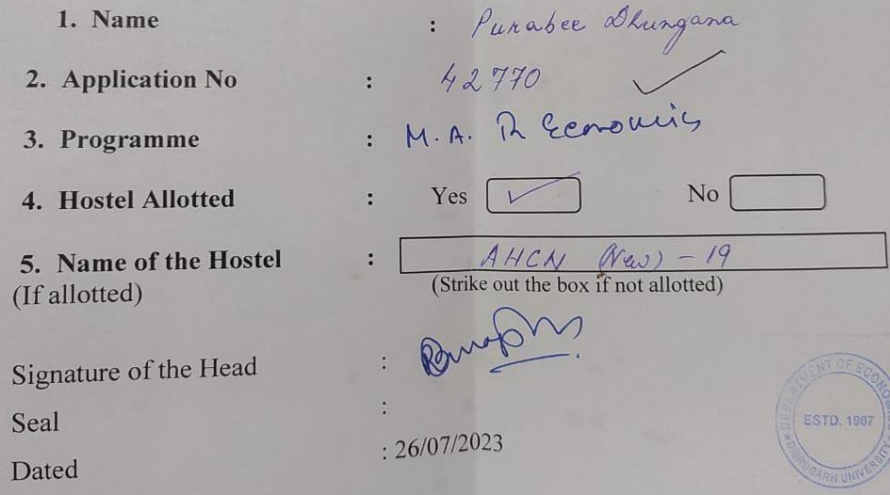 1. Name : Purabee Dhungana
2. Application No : 42770
3. Programme : M.A. In Economics
4. Hostel Allotted : Yes ✓ No
5. Name of the Hostel : AHCN (New) - 19
(If allotted) (Strike out the box if not allotted)
Signature of the Head :
Seal :
Dated : 26/07/2023
DEPARTMENT OF ECONOMICS
ESTD. 1967
DIBRUGARH UNIVERSITY